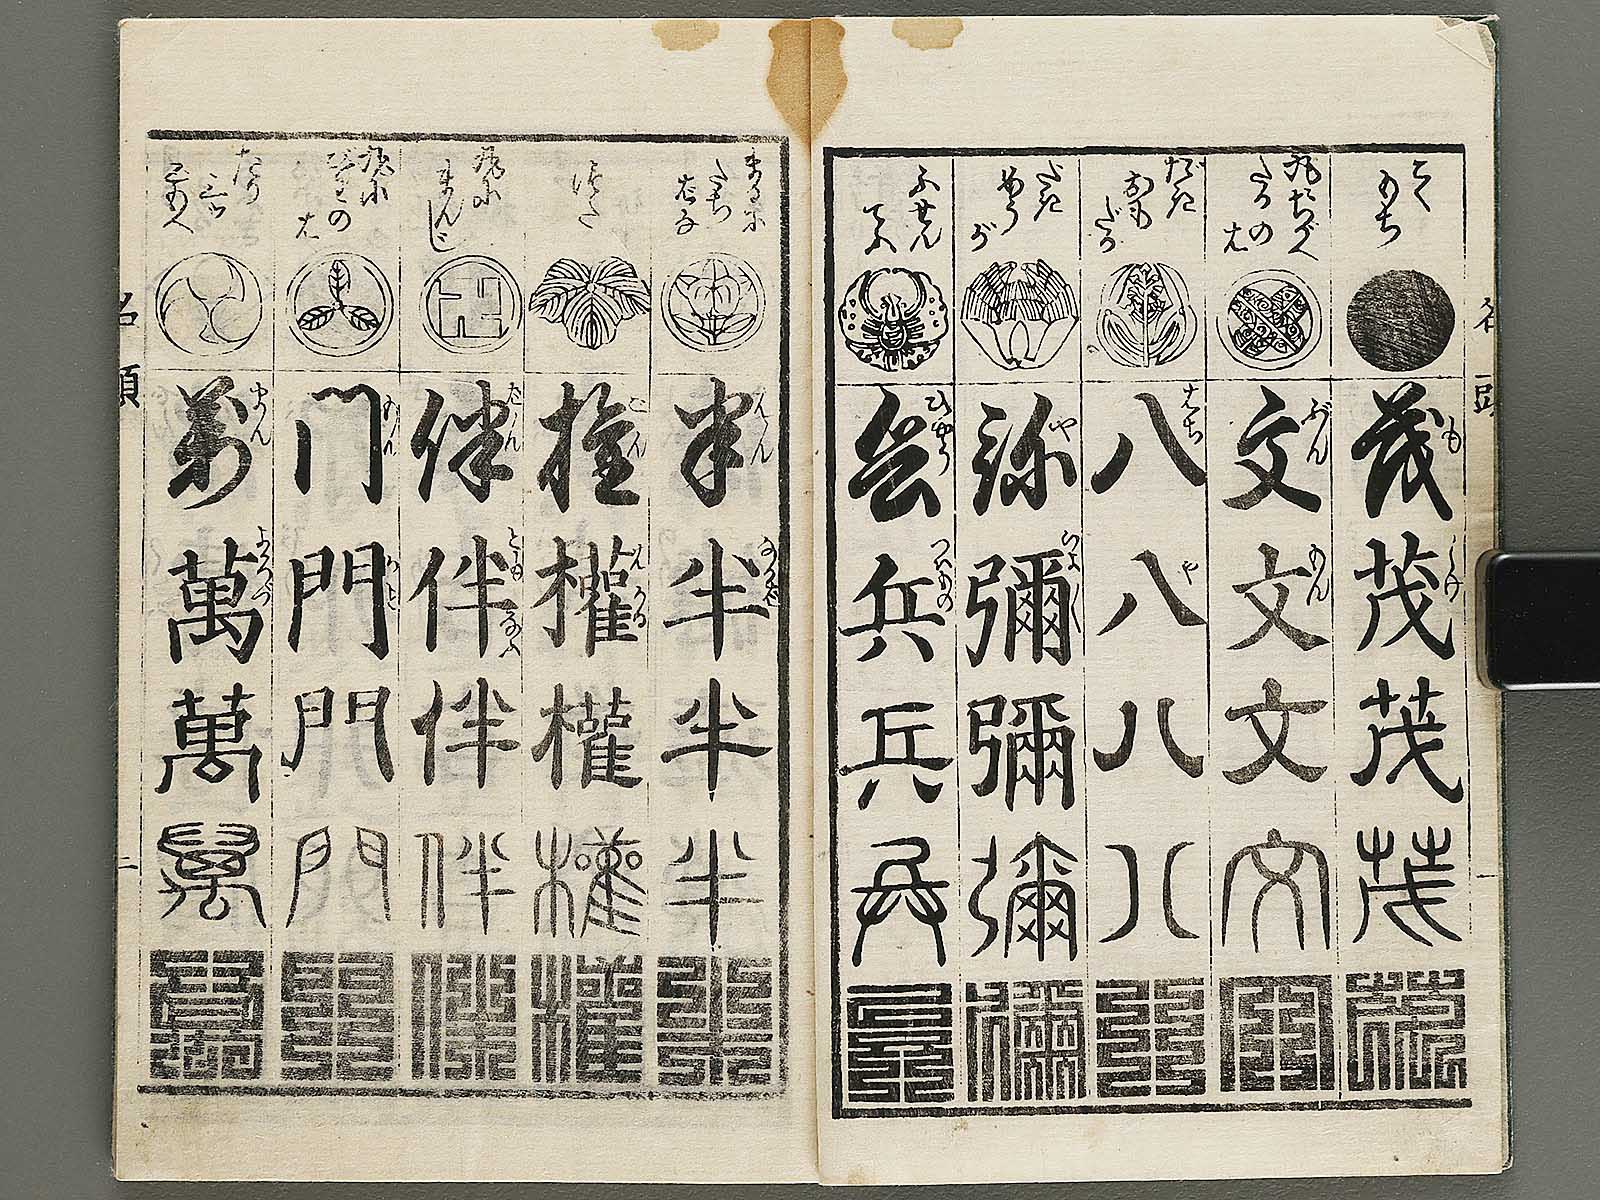 こく
もち
茂 も
茂 しげ
茂
茂
丸に
ちがへ
たかの
は
文 ぶん
文 もん
文
文
だき
おも
だか
八 はち
八 や
八
八
だき
めうが
弥 や
彌
彌
彌
ふせん
てふ
兵 ひやう
兵 つはもの
兵
兵
名頭
一
まるに
たち
ばな
半 はん
半 なかば
半
半
つた
権 ごん
權 はかる
權
權
丸に
まんじ
伴 ばん
伴 ともなふ
伴
伴
丸に
の
は
門 もん
門 かど
門
門
三ツ
ともへ
万 まん
萬 よろづ
萬
萬
名頭
二